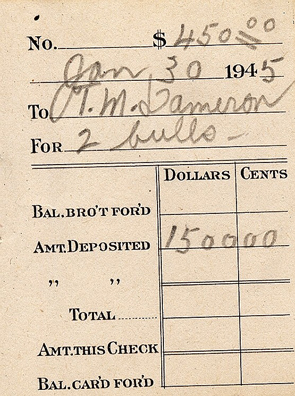 No. $ 450.00
Jan 30 1945
To T. M. Dameron
For 2 bulls -
Dollars Cents
Bal. Bro't For'd
Amt. Deposited 1500 00
" "
Total
Amt. This Check
Bal. Car'd For'd